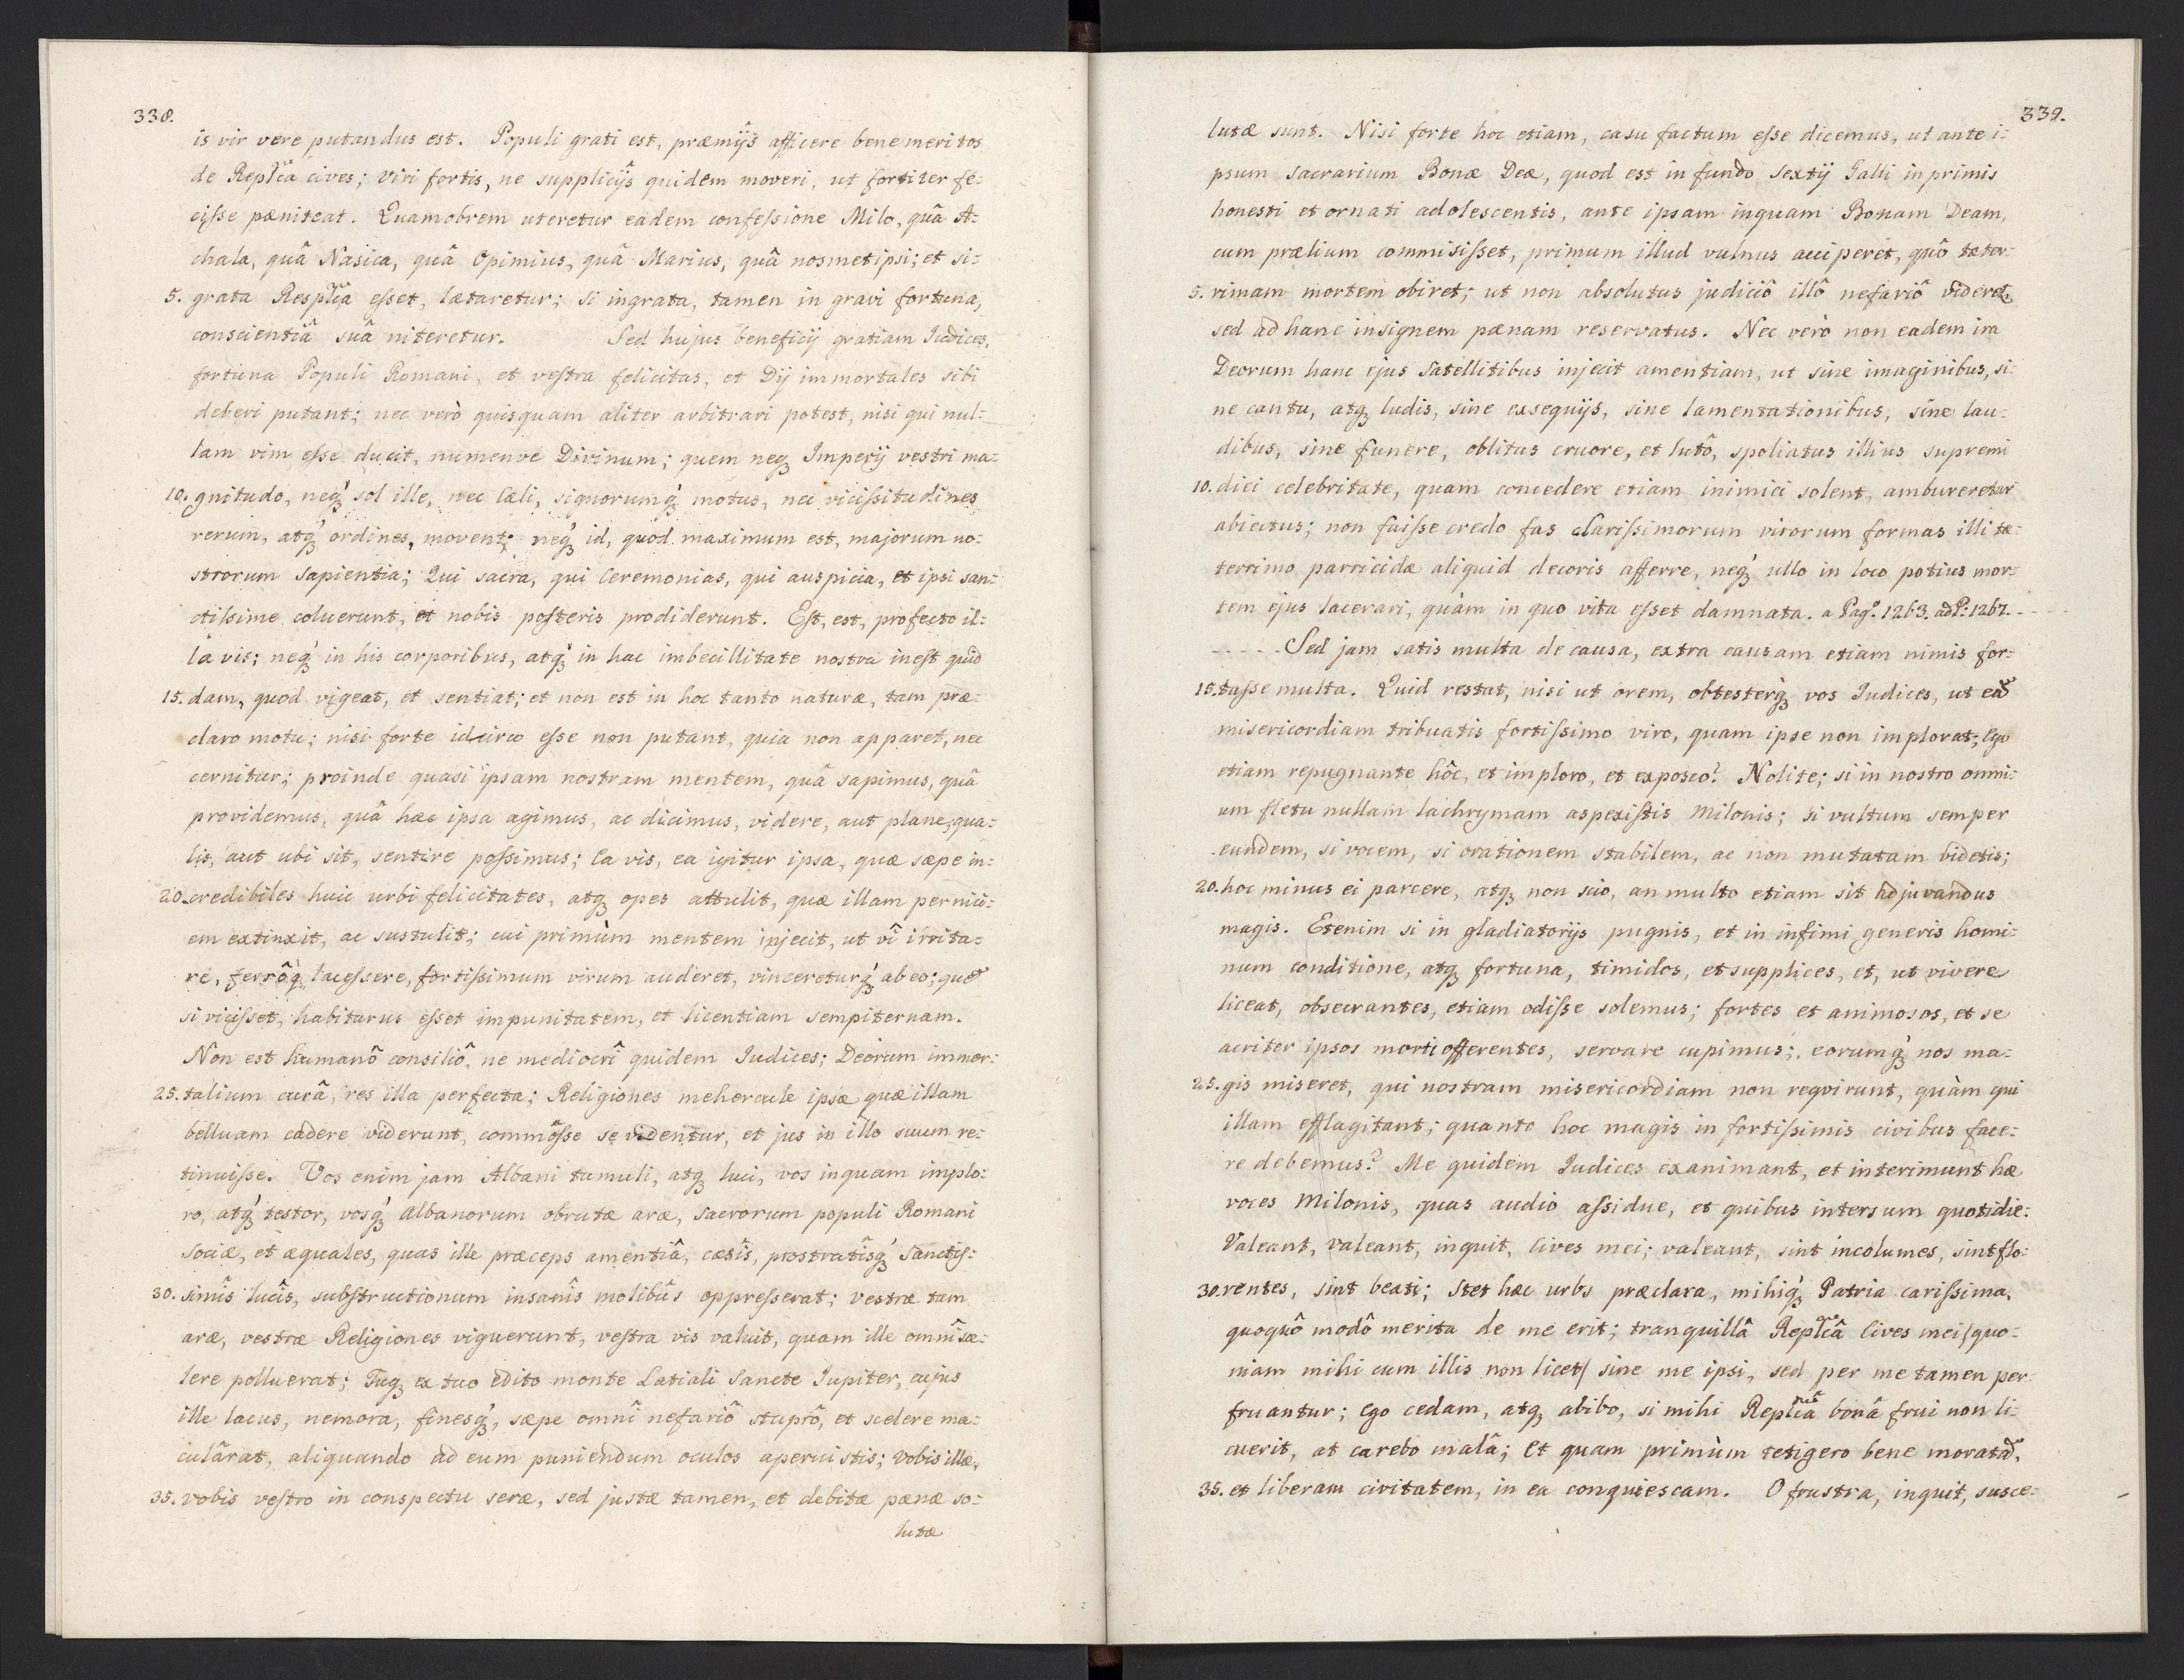 338.
is vir vere putandus est. Populi grati est, præmijs afficere bene meritos
de Replĩca cives; viri fortis, ne supplicijs quidem moveri, ut fortiter fe:
cisse pæniteat. Quamobrem uteretur eadem confessione Milo, quâ A:
chala, quâ Nasica, quâ Opimius, quâ Marius, quâ nosmetipsi; et si:
5. grata Resplĩca esset, lætaretur; si ingrata, tamen in gravi fortuna,
conscientiâ suâ niteretur. Sed hujus beneficij gratiam Iudices,
fortuna Populi Romani, et vestra felicitas, et Dij immortales sibi
deberi putant; nec verò quisquam aliter arbitrari potest, nisi qui nul:
lam vim esse ducit, numenve Divinum; quem neqꝫ Imperij vestri ma:
10. gnitudo, neqꝫ sol ille, nec Cæli, signorumqꝫ motus, nec vicissitudines
rerum, atqꝫ ordines, movent; neqꝫ id, quod maximum est, majorum no:
strorum sapientia; Qui sacra, qui Ceremonias, qui auspicia, et ipsi san:
ctissime coluerunt, et nobis posteris prodiderunt. Est, est, profecto il:
la vis; neqꝫ in his corporibus, atqꝫ in hac imbecillitate nostra inest quid
15. dam, quod vigeat, et sentiat; et non est in hoc tanto naturæ, tam præ:
claro motu; nisi forte idcirco esse non putant, quia non apparet, nec
cernitur; proinde quasi ipsam nostram mentem, quâ sapimus, quâ
providemus, quâ hæc ipsa agimus, ac dicimus, videre, aut plane, qua:
lis, aut ubi sit, sentire possimus; Ea vis, ea igitur ipsa, quæ sæpe in:
20. credibiles huic urbi felicitates, atqꝫ opes attulit, quæ illam pernici:
em extinxit, ac sustulit; cui primùm mentem injecit, ut vî irrita:
re, ferrôqꝫ lacessere, fortissimum virum auderet, vincereturqꝫ ab eo; quẽ
si vicisset, habiturus esset impunitatem, et licentiam sempiternam.
Non est humanô consiliô, ne mediocrî quidem Iudices; Deorum immor:
25. talium curâ, res illa perfecta; Religiones mehercule ipsæ quæ illam
belluam cadere viderunt, commôsse se videntur, et jus in illo suum re:
tinuisse. Vos enim jam Albani tumuli, atqꝫ luci, vos inquam implo:
ro, atqꝫ testor, vosqꝫ Albanorum obrutæ aræ, sacrorum populi Romani
sociæ, et æquales, quas ille præceps amentiâ, cæsîs, prostratîsqꝫ sanctis:
30. simîs lucîs, substructionum insanîs molibûs oppresserat; vestræ tam
aræ, vestræ Religiones viguerunt, vestra vis valuit, quam ille omnî sce:
lere polluerat; Tuqꝫ ex tuo edito monte Latiali Sancte Iupiter, cujus
ille lacus, nemora, finesqꝫ, sæpe omnî nefariô stuprô, et scelere ma:
culârat, aliquando ad eum puniendum oculos aperuistis; vobis illæ,
35. vobis vestro in conspectu seræ, sed justæ tamen, et debitæ pænæ so:
lutæ
339.
lutæ sunt. Nisi forte hoc etiam, casu factum esse dicemus, ut ante i:
psum sacrarium Bonæ Deæ, quod est in fundo Sextij Galli inprimis
honesti et ornati adolescentis, ante ipsam inquam Bonam Deam,
cum prælium commisisset, primum illud vulnus acciperet, quô teter:
5. rimam mortem obiret; ut non absolutus judiciô illô nefariô videret,
sed ad hanc insignem pænam reservatus. Nec verò non eadem ira
Deorum hanc ejus satellitibus injecit amentiam, ut sine imaginibus, si:
ne cantu, atqꝫ ludis, sine exsequijs, sine lamentationibus, sine lau:
dibus, sine funere, oblitus cruore, et lutô, spoliatus illius supremi
10. diei celebritate, quam concedere etiam inimici solent, ambureretur
abiectus; non fuisse credo fas clarissimorum virorum formas illi te:
terrimo parricidæ aliquid decoris afferre, neqꝫ ullo in loco potius mor:
tem ejus lacerari, quàm in quo vita esset damnata. a Pag. 1263. ad P. 1267. - - - -
- - - - - Sed jam satis multa de causa, extra causam etiam nimis for:
15. tasse multa. Quid restat, nisi ut orem, obtesterqꝫ vos Iudices, ut eã
misericordiam tribuatis fortissimo viro, quam ipse non implorat; Ego
etiam repugnante hôc, et imploro, et exposco? Nolite; si in nostro omni:
um fletu nullam lachrymam aspexistis Milonis; si vultum semper
eundem, si vocem, si orationem stabilem, ac non mutatam videtis;
20. hoc minus ei parcere, atqꝫ non scio, an multo etiam sit adjuvandus
magis. Etenim si in gladiatorijs pugnis, et in infimi generis homi:
num conditione, atqꝫ fortuna, timidos, et supplices, et, ut vivere
liceat, obsecrantes, etiam odisse solemus; fortes et animosos, et se
acriter ipsos morti offerentes, servare cupimus; eorumqꝫ nos ma:
25. gis miseret, qui nostram misericordiam non reqvirunt, quàm qui
illam efflagitant; quanto hoc magis in fortissimis civibus face:
re debemus? Me quidem Iudices exanimant, et interimunt hæ
voces Milonis, quas audio assidue, et quibus intersum quotidie:
Valeant, valeant, inquit, Cives mei; valeant, sint incolumes, sint flo:
30. rentes, sint beati; Stet hæc urbs præclara, mihiqꝫ Patria carissima,
quoquô modô merita de me erit; tranquillâ Replĩcâ Cives mei (quo:
niam mihi cum illis non licet) sine me ipsi, sed per me tamen per:
fruantur; Ego cedam, atqꝫ abibo, si mihi Replĩcâ bonâ frui non li:
cuerit, at carebo malâ; Et quam primùm tetigero bene moratã,
35. et liberam civitatem, in ea conquiescam. O frustra, inquit, susce: